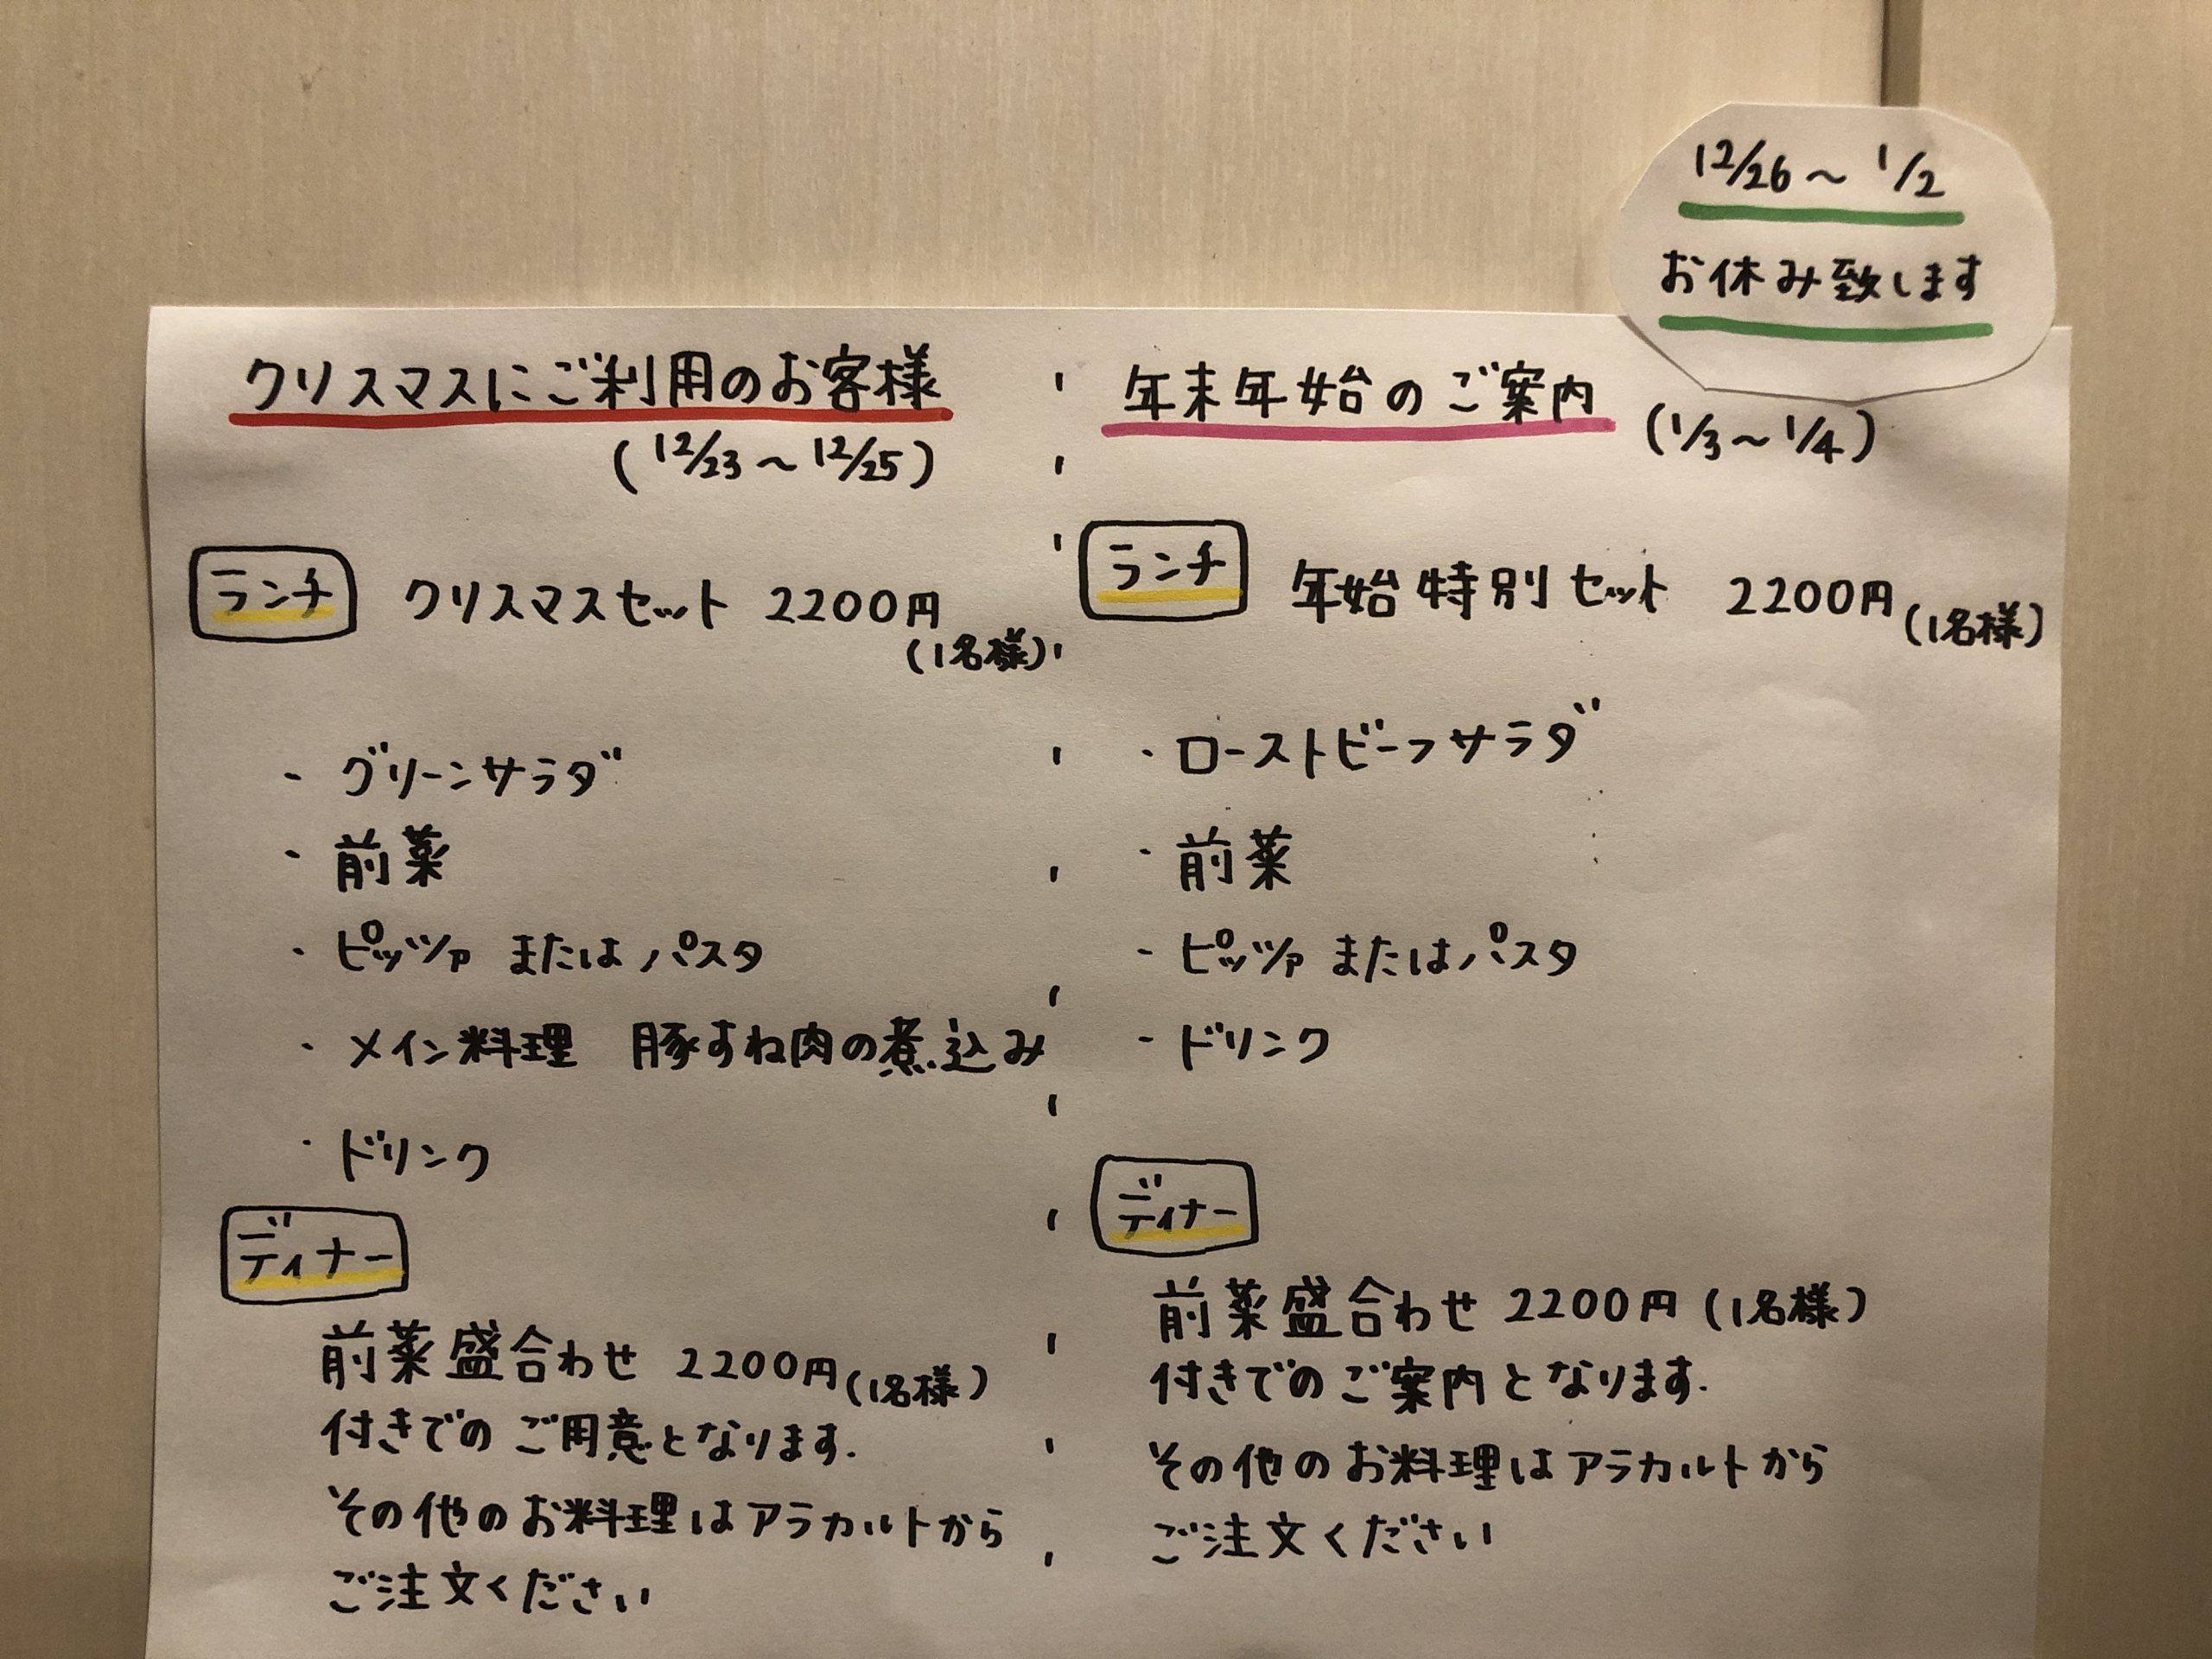 12/26～1/2
お休み致します
クリスマスにご利用のお客様
(12/23～12/25)
ランチ クリスマスセット 2200円
(1名様)
・グリーンサラダ
・前菜
・ピッツァ または パスタ
・メイン料理 豚すね肉の煮込み
・ドリンク
ディナー
前菜盛合わせ 2200円(1名様)
付きでの ご用意となります.
その他のお料理はアラカルトから
ご注文ください
年末年始のご案内 (1/3～1/4)
ランチ 年始特別セット 2200円(1名様)
・ローストビーフサラダ
・前菜
・ピッツァ または パスタ
・ドリンク
ディナー
前菜盛合わせ 2200円(1名様)
付きでの ご案内となります.
その他のお料理はアラカルトから
ご注文ください